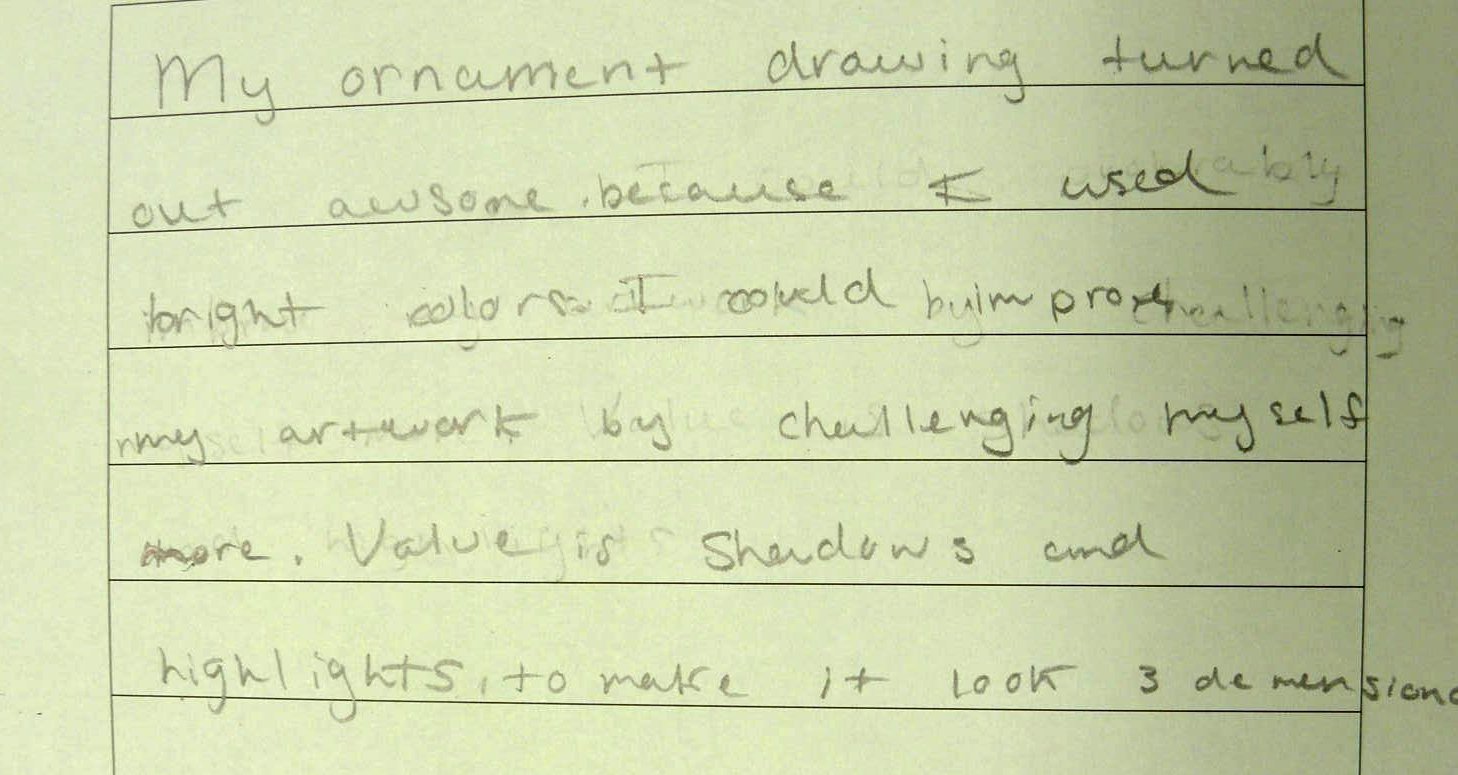 My ornament drawing turned
out awsome. because I used
bright colors. I could improve
my artwork by challenging myself
more. Value is Shadows and
highlights, to make it look 3 demensiona